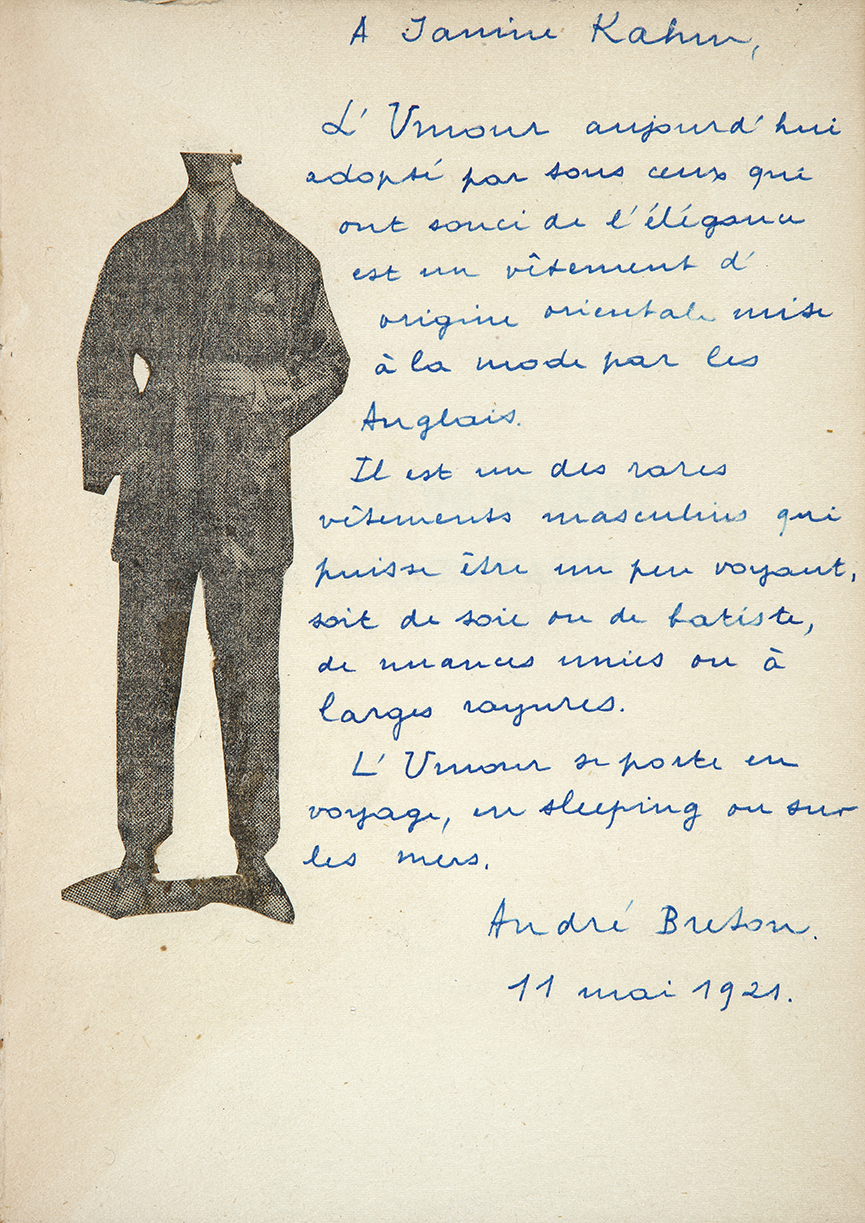 A Janine Kahn,
L' Umour aujourd'hui
adopté par tous ceux que
ont souci de l'élégance
est un vêtement d'
origine orientale mise
à la mode par les
Anglais.
Il est un des rares
vêtements masculins qui
puisse être un peu voyant,
soit de soie ou de batiste,
de nuances unies ou à
larges rayures.
L' Umour se porte en
voyage, en sleeping ou sur
les mers.
André Breton.
11 mai 1921.